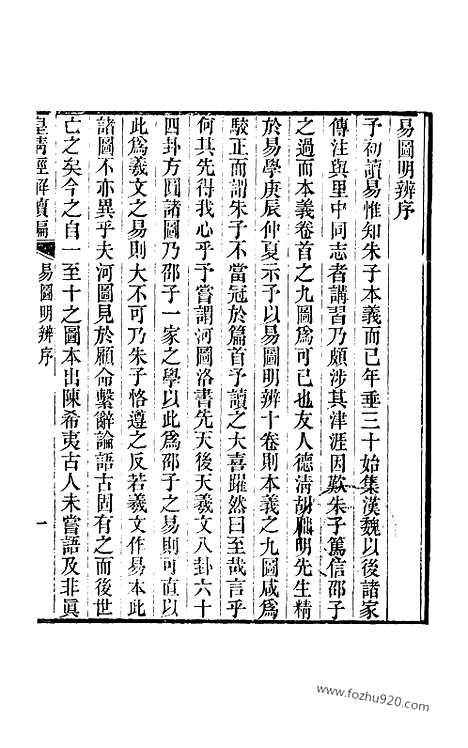 易圖明辨序
予初讀易惟知朱子本義而已年垂三十始集漢魏以後諸家
傳注與里中同志者講習乃頗涉其津涯因歎朱子篤信邵子
之過而本義卷首之九圖爲可已也友人德清胡朏明先生精
於易學庚辰仲夏示予以易圖明辨十卷則本義之九圖咸爲
駮正而謂朱子不當冠於篇首予讀之大喜躍然曰至哉言乎
何其先得我心乎予嘗謂河圖洛書先天後天羲文八卦六十
四卦方圓諸圖乃邵子一家之學以此爲邵子之易則可直以
此爲羲文之易則大不可乃朱子恪遵之反若羲文作易本此
諸圖不亦異乎夫河圖見於顧命繫辭論語古固有之而後世
亡之矣今之自一至十之圖本出陳希夷古人未嘗語及非眞
皇清經解續編
易圖明辨序
一
www.fozhu920.com